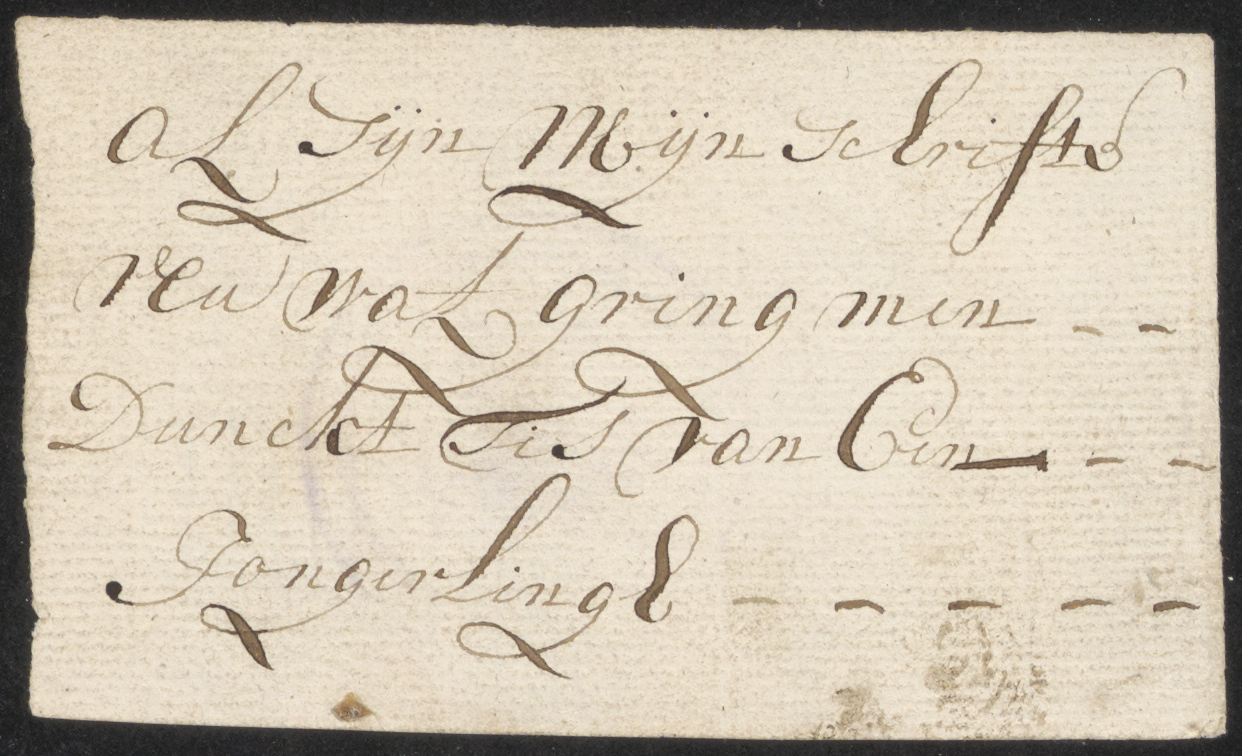 al sijn mijn schrifte
ren wat gring men - -
Dunckt tis van Een - - -
Jongerlingh - - - - -